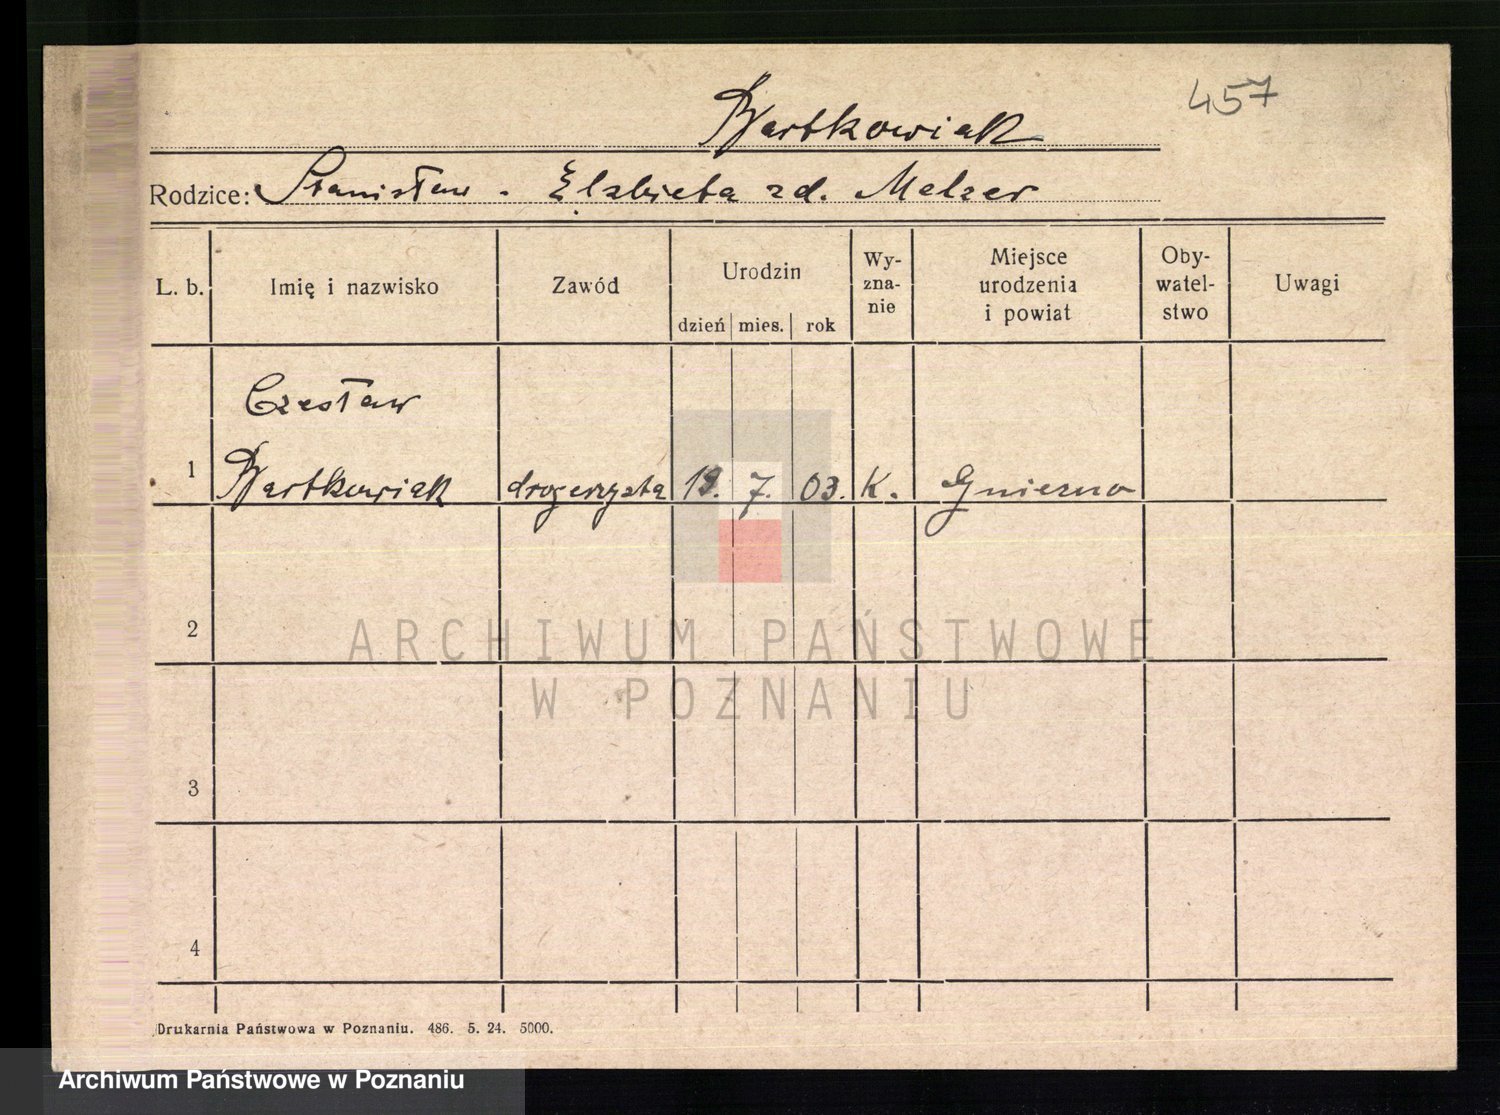 457
Bartkowiak
Rodzice: Stanisław - Elżbieta zd. Melzer
L. b.
Imię i nazwisko
Zawód
Urodzin
dzień mies. rok
Wy-
zna-
nie
Miejsce
urodzenia
i powiat
Oby-
watel-
stwo
Uwagi
Czesław
1 Bartkowiak drogerzysta 19. 7. 03. K. Gniezno
2
ARCHIWUM PAŃSTWOWE
W POZNANIU
3
4
Drukarnia Państwowa w Poznaniu. 486. 5. 24. 5000.
Archiwum Państwowe w Poznaniu